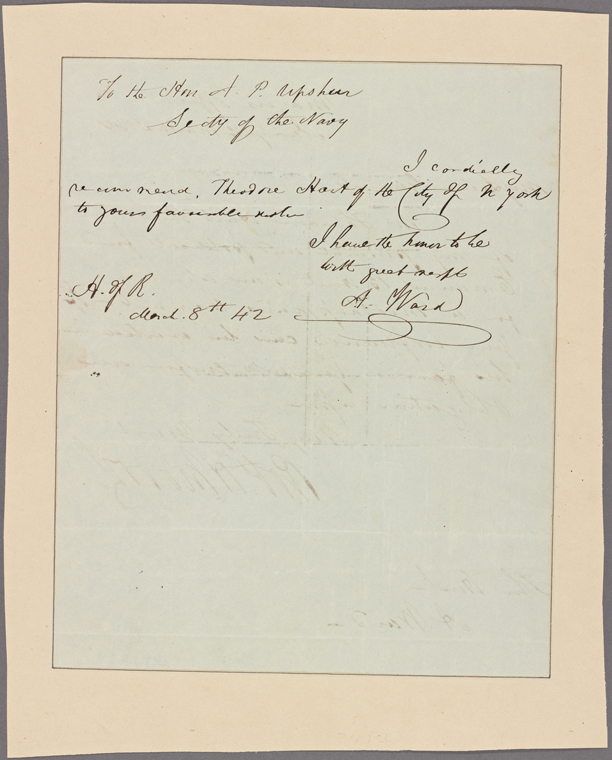 To the Hon A. P. Upshur
Secty of the Navy
I cordially
recommend, Theodore Hart of the City of N York
to yours favourable notice
I have the honor to be
with great respt
A. Ward
H. of R.
March. 8th 42